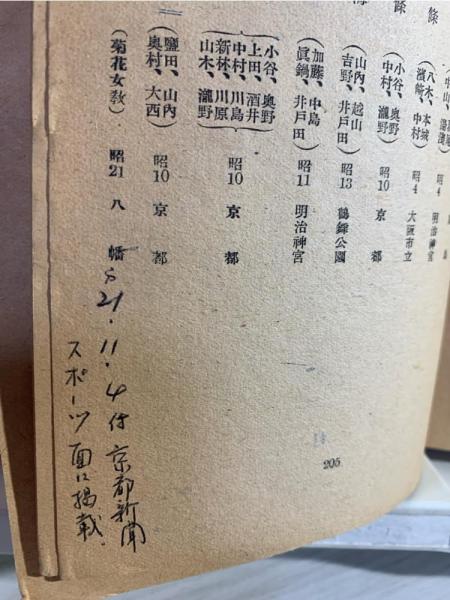 條
昭4 明治神宮
八木、本城
濱崎、中村
昭4 大阪市立
小谷、奥野
中村、瀧野
昭10 京都
山內、越山
吉野、井戸田
昭13 鶴舞公園
加藤、中島
眞鍋、井戸田
昭11 明治神宮
小谷、奥野
上田、酒井
中村、川島
新林、川原
山木、瀧野
昭10 京都
鹽田、山內
奥村、大西
昭10 京都
(菊花女敎) 昭21 八幡
S21.11.4付 京都新聞
スポーツ面に掲載.
205